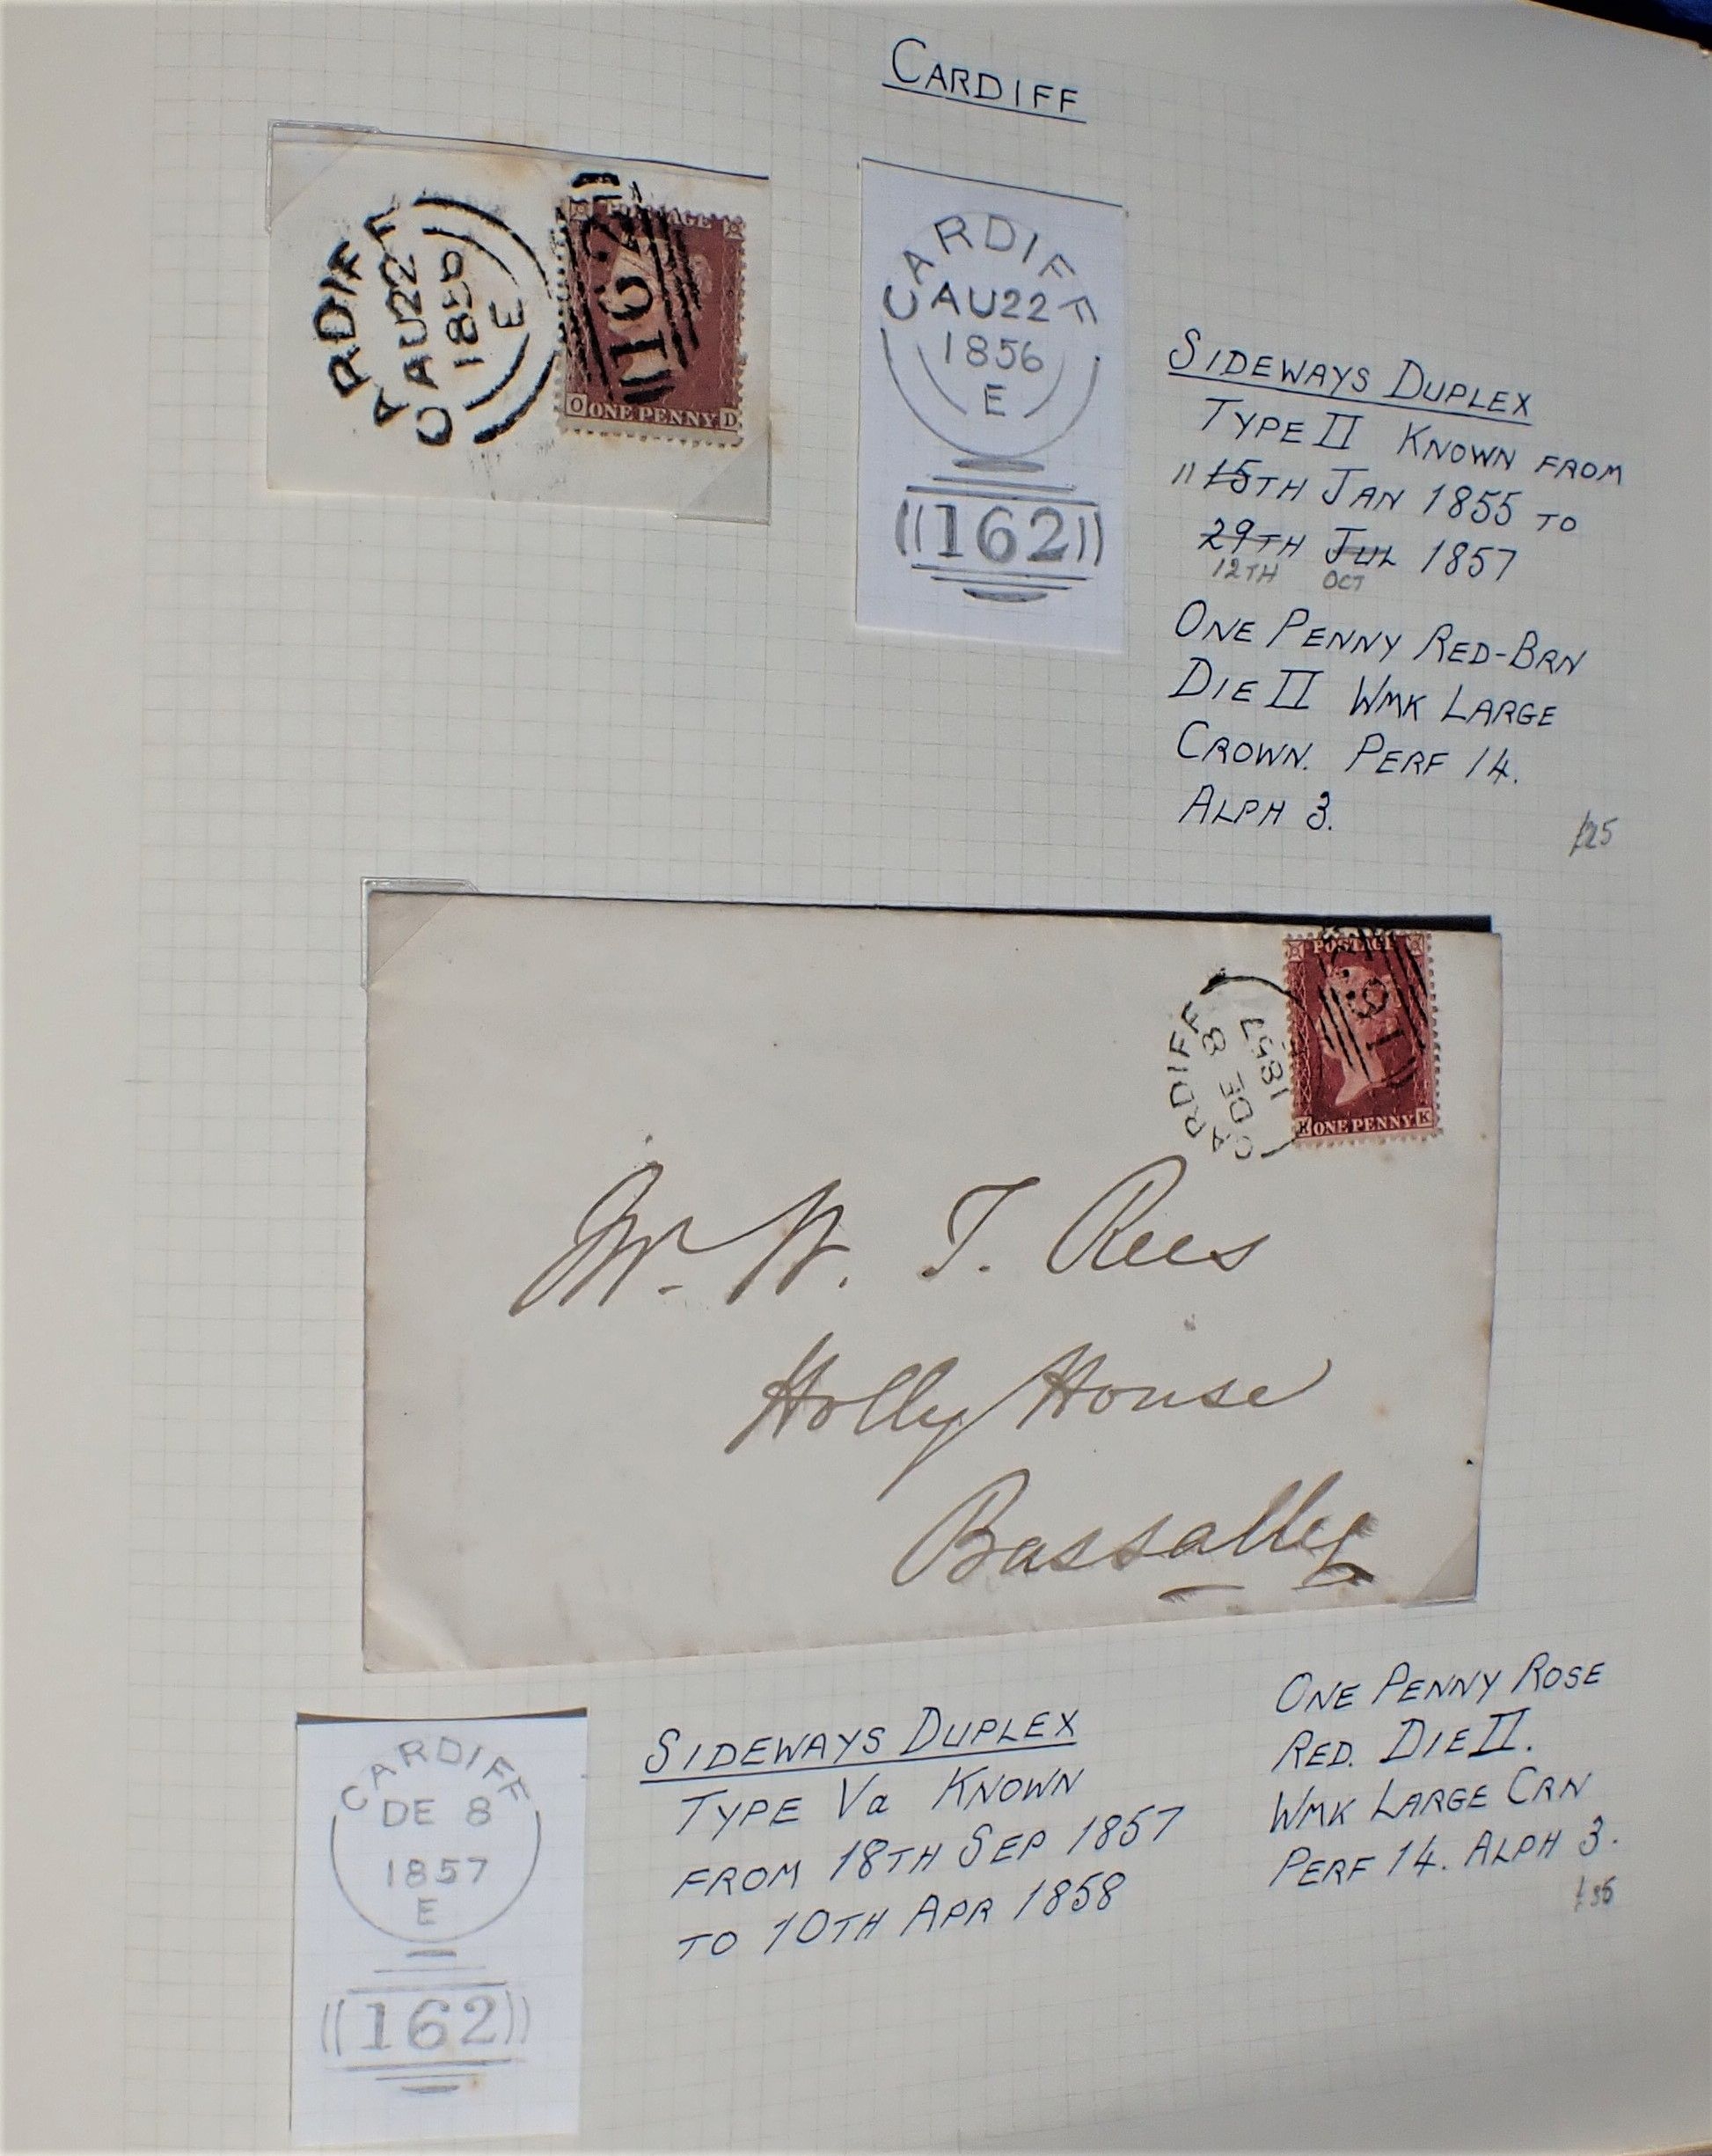 CARDIFF
CARDIFF
AU22
1856
E
162
POSTAGE
O ONE PENNY D
CARDIFF
AU22
1856
E
162
SIDEWAYS DUPLEX
TYPE II KNOWN FROM
11 15TH JAN 1855 TO
29TH JUL 1857
12TH OCT
ONE PENNY RED-BRN
DIE II WMK LARGE
CROWN. PERF 14.
ALPH 3.
£25
CARDIFF
DE 8
1857
POSTAGE
162
K ONE PENNY K
Mr. W. T. Rees
Holly House
Bassalleg
CARDIFF
DE 8
1857
E
162
SIDEWAYS DUPLEX
TYPE Va KNOWN
FROM 18TH SEP 1857
TO 10TH APR 1858
ONE PENNY ROSE
RED. DIE II.
WMK LARGE CRN
PERF 14. ALPH 3.